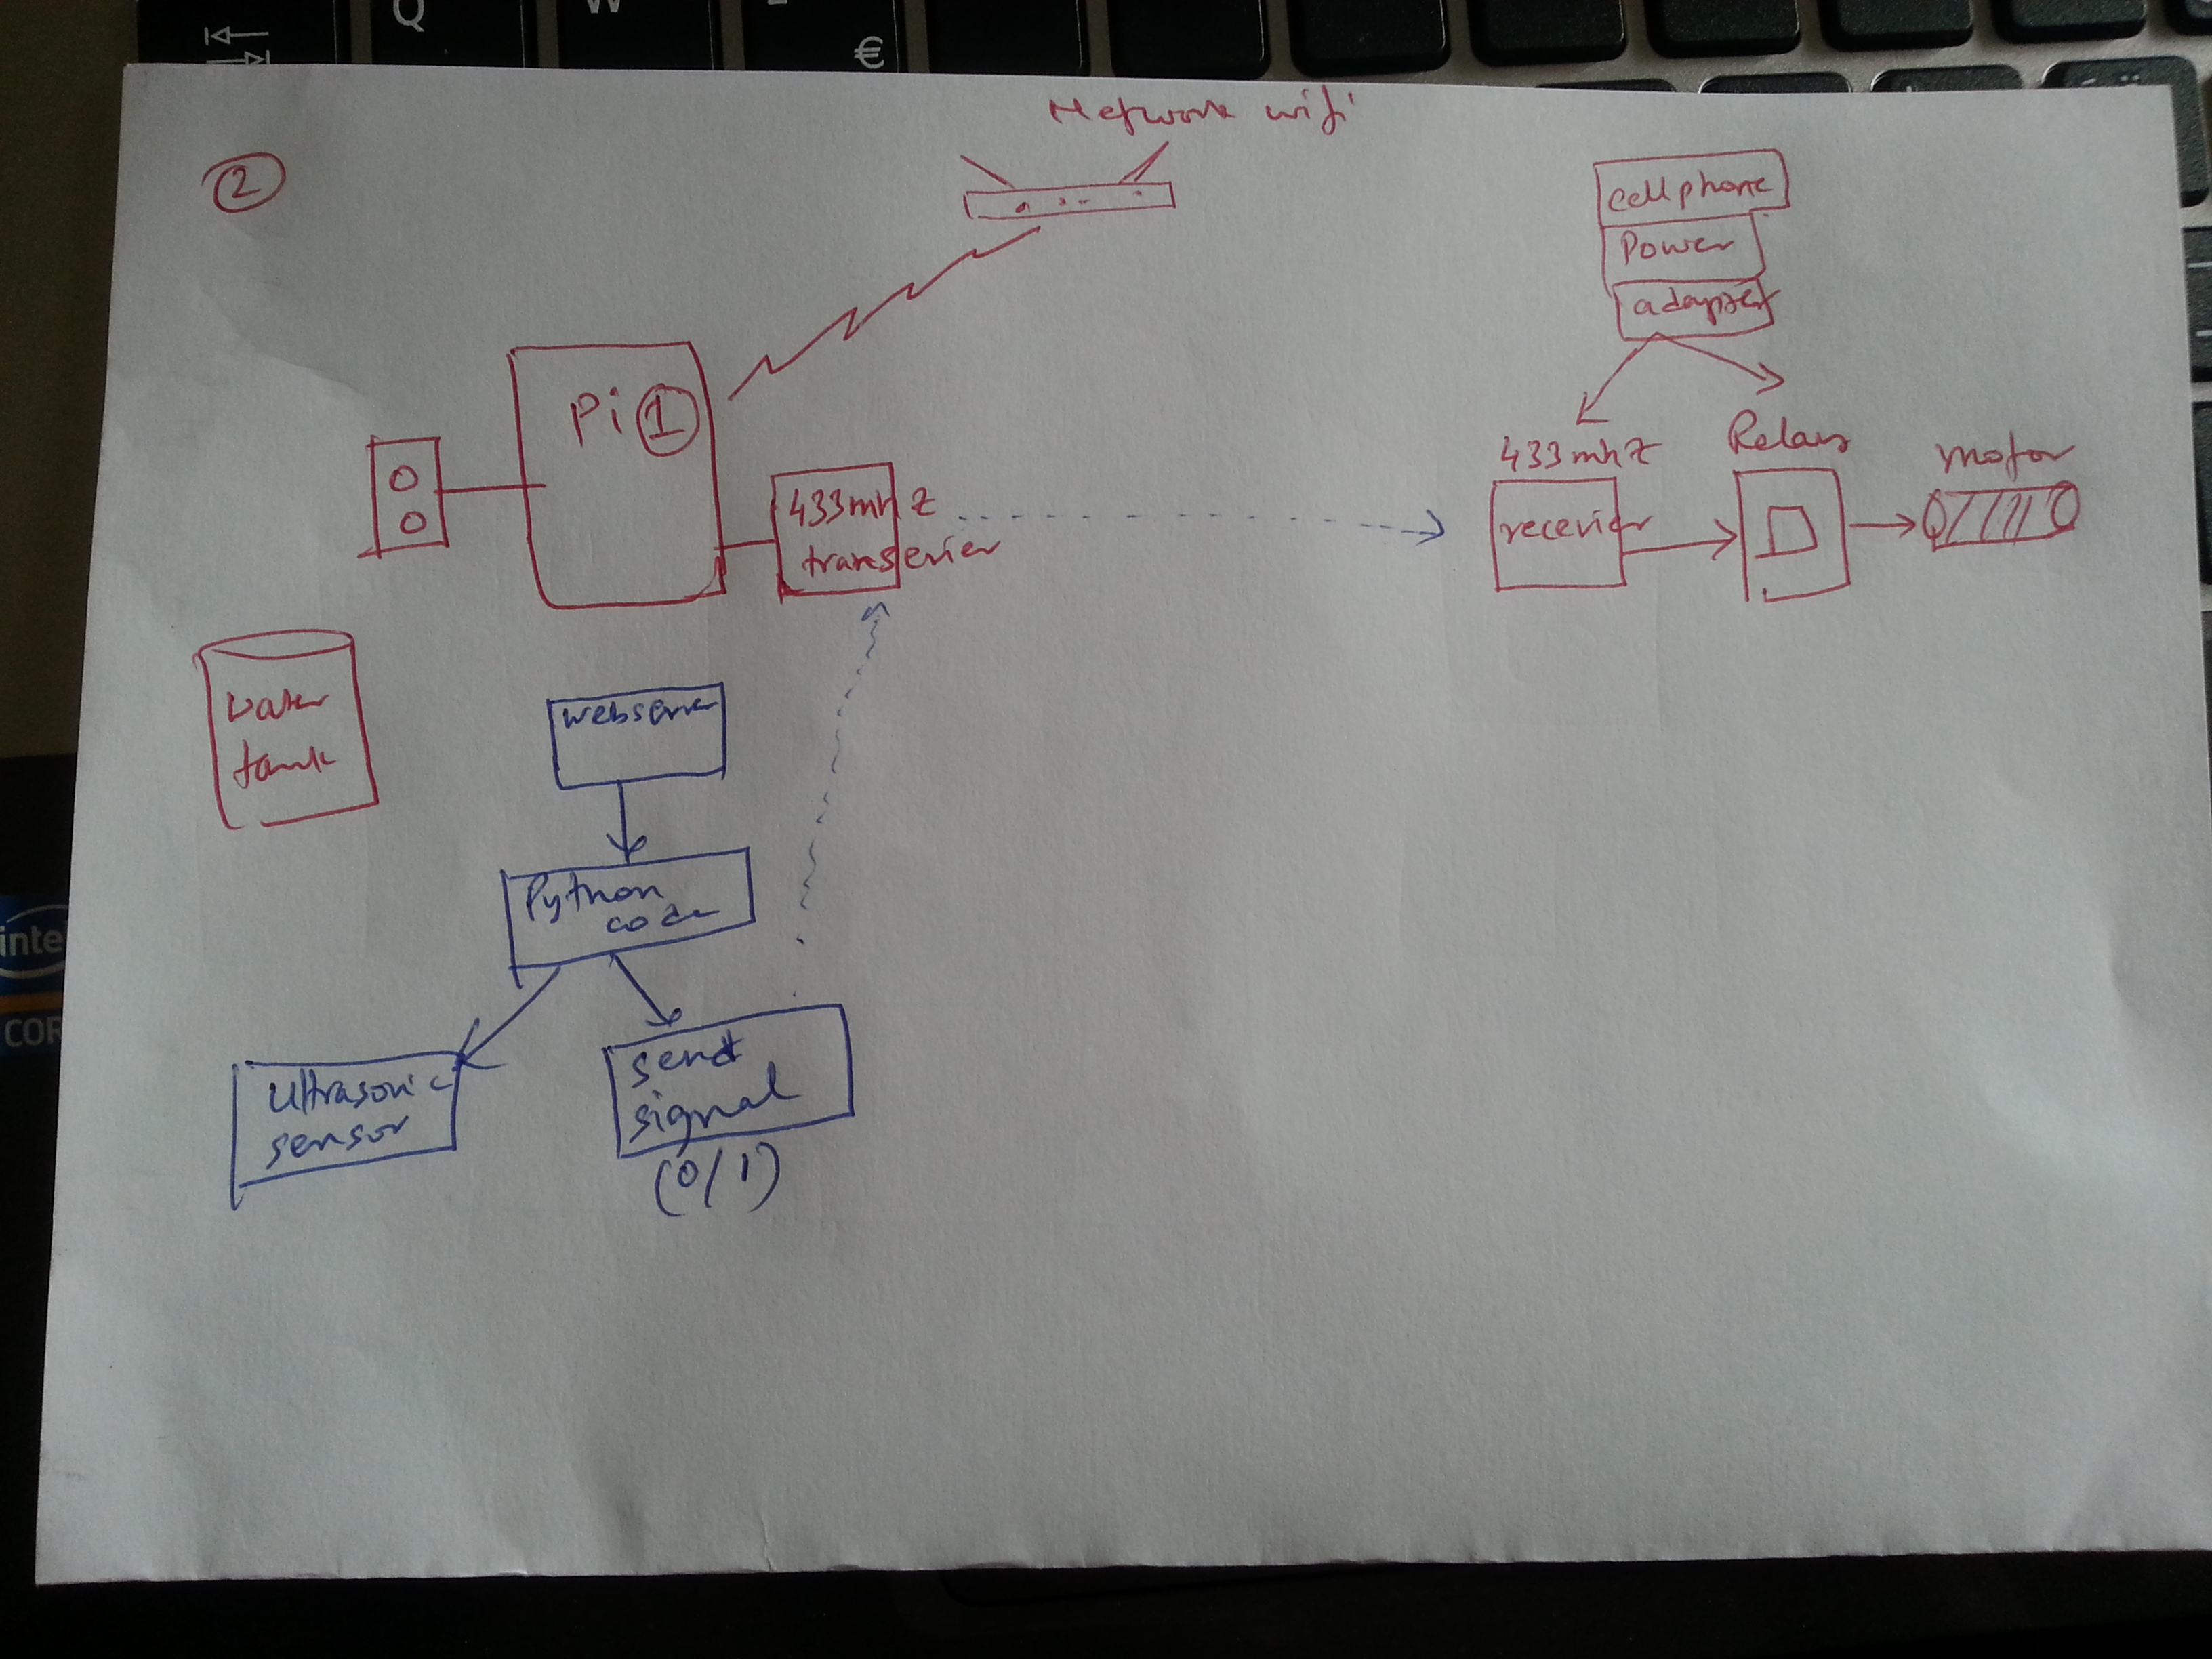 Q
W
€
②
Network wifi
cellphone
Power
adapter
Pi ①
433mhz
transerier
433mhz
recevier
Relay
motor
water
tank
webserver
Python
code
ultrasonic
sensor
send
signal
(0/1)
inte
COR